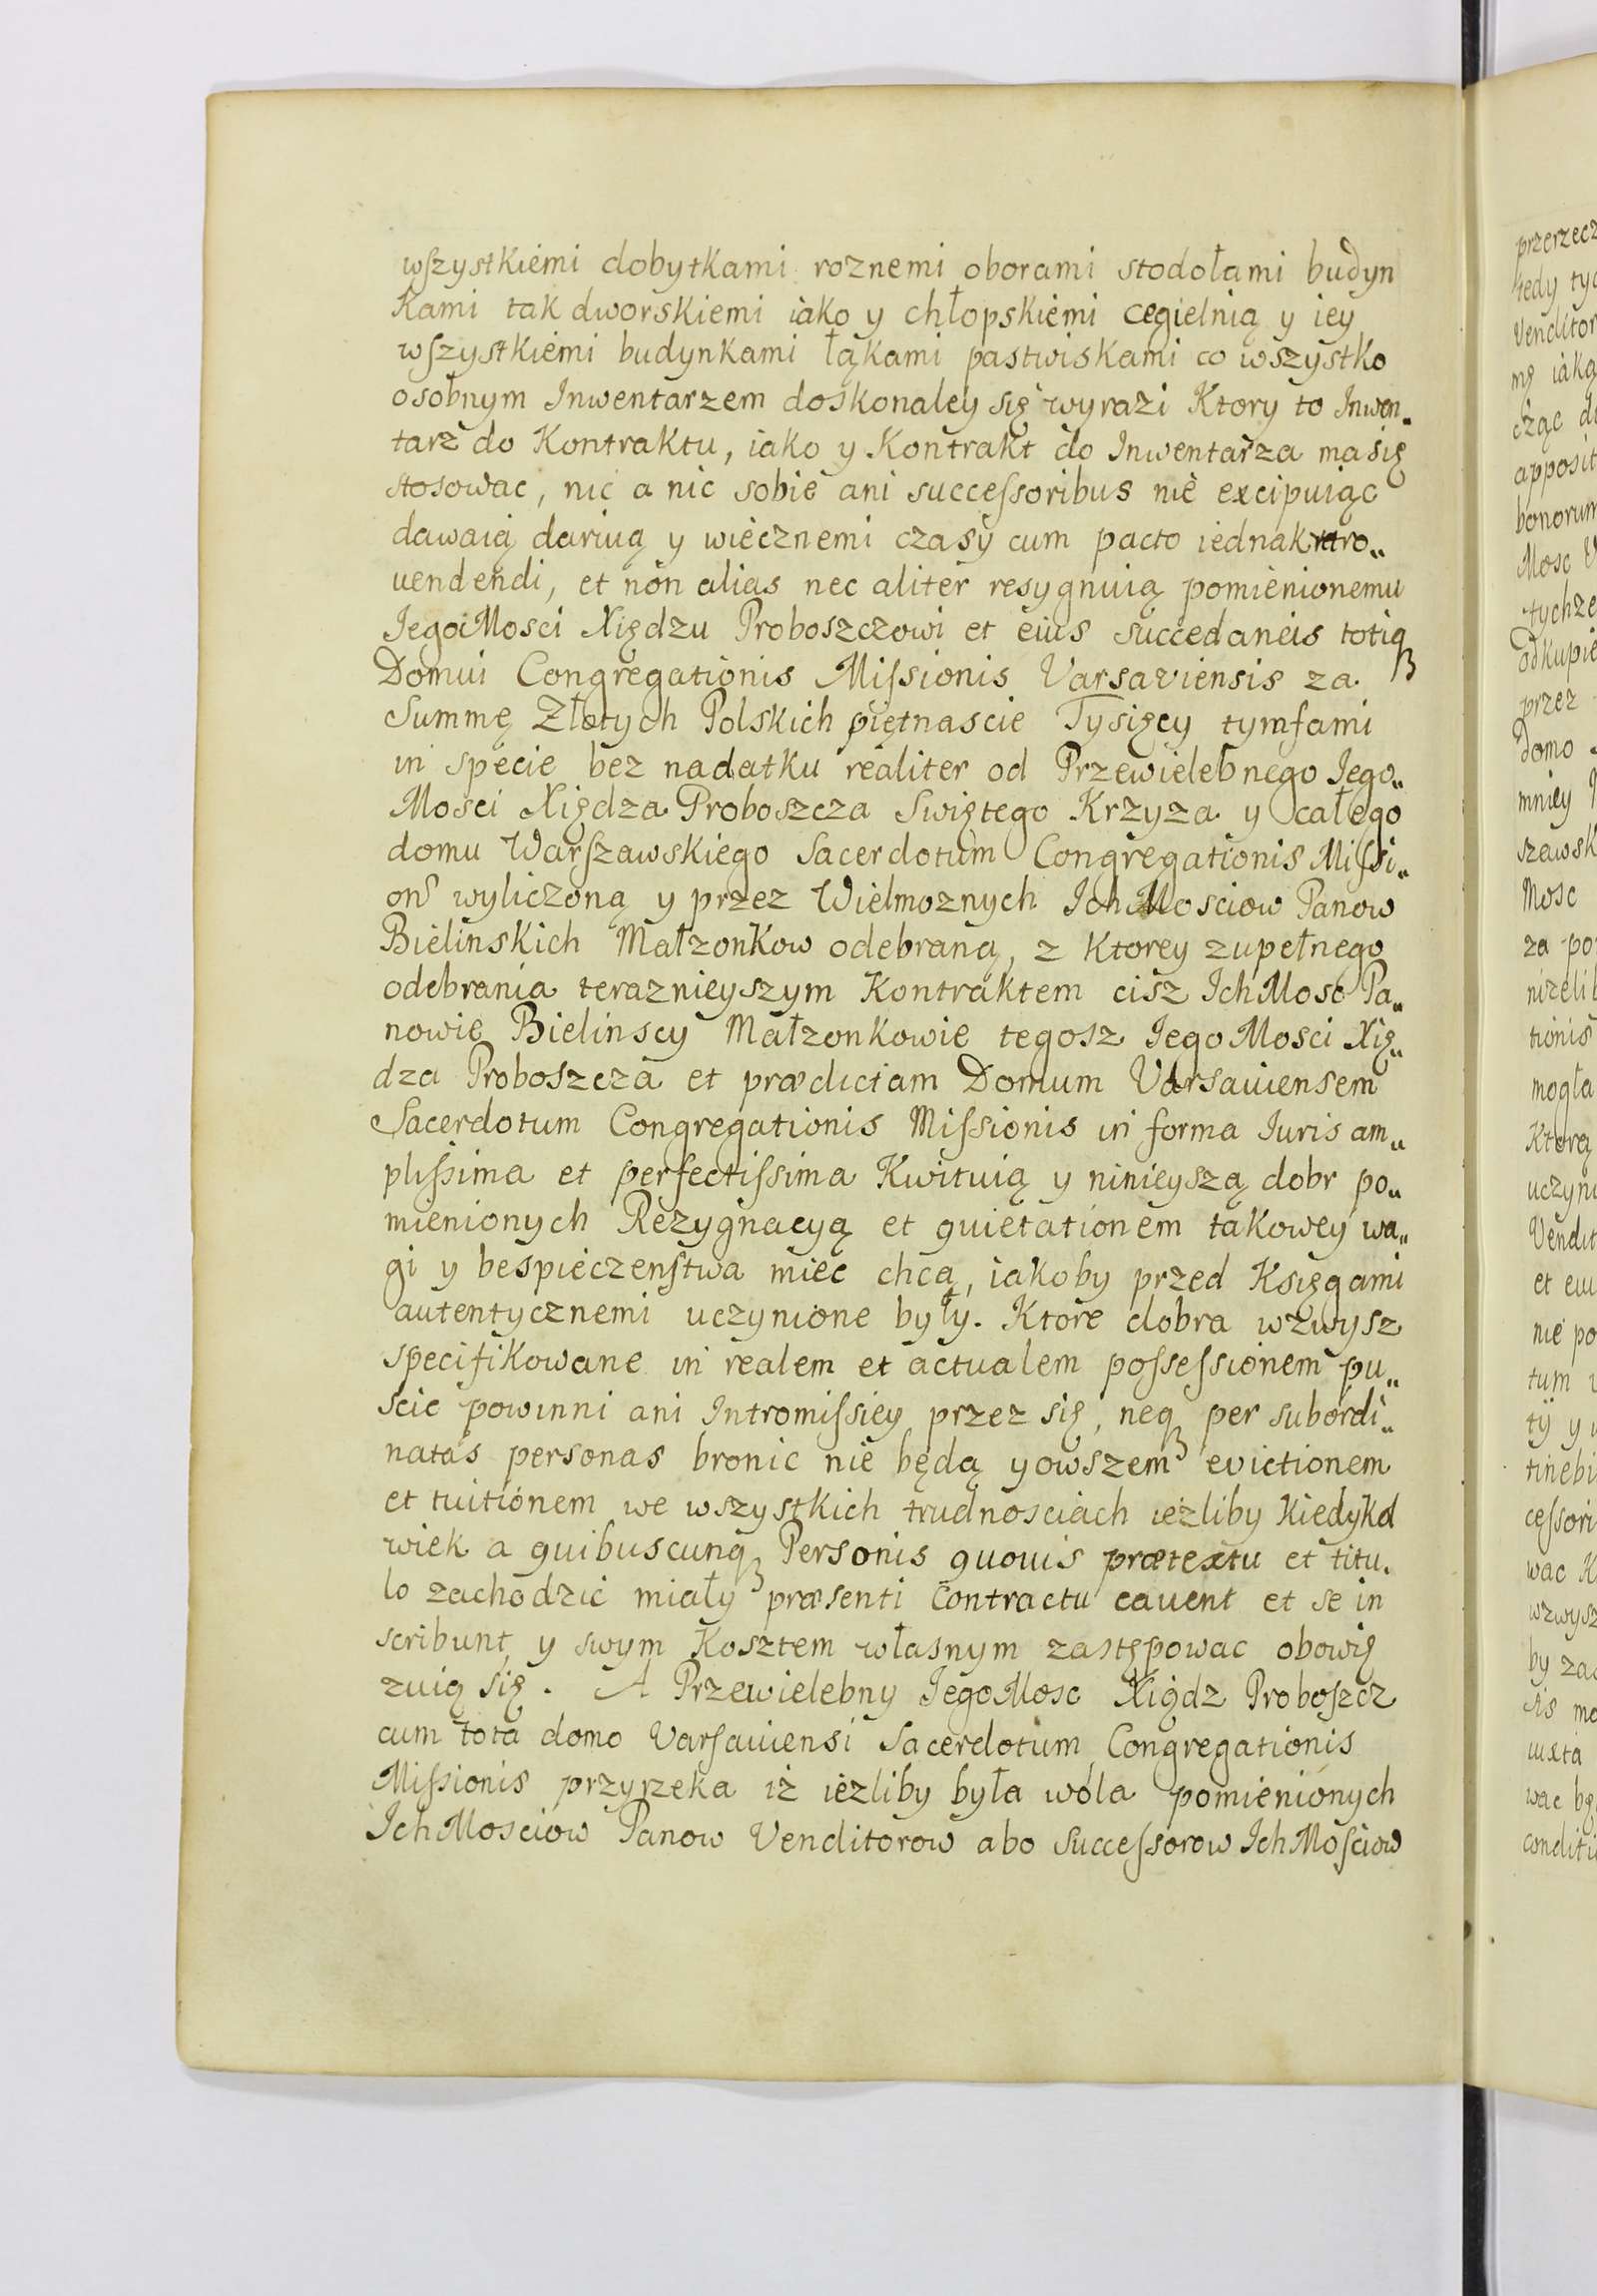 wszystkiemi dobytkami roznemi oborami stodołami budyn
kami tak dworskiemi iako y chłopskiemi cegielnią y iey
wszystkiemi budynkami łąkami pastwiskami co wszystko
osobnym Inwentarzem doskonaley się wyrazi Ktory to Inwen„
tarz do Kontraktu, iako y Kontrakt do Inwentarza ma się
stosowac, nic a nic sobie ani successoribus nie excipuiąc
dawaią daruią y wiecznemi czasy cum pacto iednak retro„
uendendi, et non alias nec aliter resygnuią pomienionemu
Jego Mosci Xiędzu Proboszczowi et eius succedaneis totiq3
Domui Congregationis Missionis Varsaviensis za
Summę Złotych Polskich piętnascie Tysięcy tymfami
in specie bez nadatku realiter od Przewielebnego Jego„
Mosci Xiędza Proboszcza Swiętego Krzyza y całego
domu Warszawskiego Sacerdotum Congregationis Missi„
onis wyliczoną y przez Wielmoznych Ich Mosciow Panow
Bielinskich Małzonkow odebraną, z Ktorey zupełnego
odebrania teraznieyszym Kontraktem cisz Ich Mosc Pa„
nowie Bielinscy Małzonkowie tegosz Jego Mosci Xię„
dza Proboszcza et prædictam Domum Varsauiensem
Sacerdotum Congregationis Missionis in forma Iuris am„
plissima et perfectissima Kwituią y ninieyszą dobr po„
mienionych Rezygnacyą et quietationem takowey wa„
gi y bespieczenstwa miec chcą, iakoby przed Księgami
autentycznemi uczynione były. Ktore dobra wzwysz
specifikowane in realem et actualem possessionem pu„
scic powinni ani Intromissiey przez się, neq3 per subordi„
natas personas bronic nie będą y owszem evictionem
et tuitionem we wszystkich trudnosciach iezliby Kiedykol
wiek a quibuscunq3 Personis quouis prætextu et titu„
lo zachodzic miały præsenti Contractu cauent et se in
scribunt, y swym Kosztem własnym zastępowac obowię
zuią się. A Przewielebny Jego Mosc Xiądz Proboszcz
cum tota domo Varsauiensi Sacerdotum Congregationis
Missionis przyrzeka iż iezliby była wola pomienionych
Ich Mosciow Panow Venditorow abo Successorow Ich Mosciow